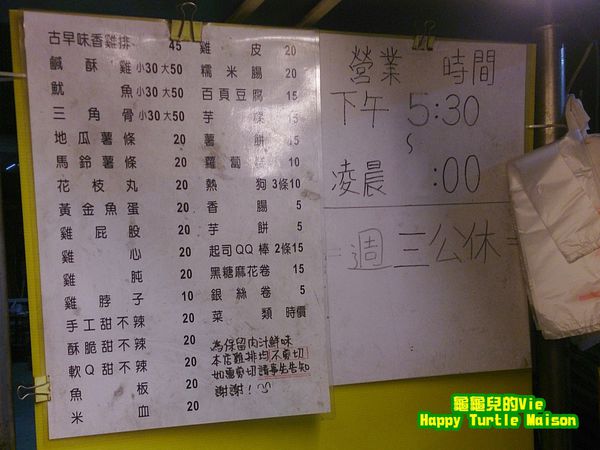 古早味香雞排 45
鹹酥雞 小30 大50
魷魚 小30 大50
三角骨 小30 大50
地瓜薯條 20
馬鈴薯條 20
花枝丸 20
黃金魚蛋 20
雞屁股 20
雞心 20
雞肫 20
雞脖子 10
手工甜不辣 20
酥脆甜不辣 20
軟Q甜不辣 20
魚板 20
米血 20
雞皮 20
糯米腸 20
百頁豆腐 15
芋粿 15
薯餅 15
蘿蔔糕 10
熱狗 3條10
香腸 5
芋餅 5
起司QQ棒 2條15
黑糖麻花卷 15
銀絲卷 5
菜類 時價
為保留肉汁鮮味
本店雞排均不剪切
如需剪切請事先告知
謝謝!
營業 時間
下午 5:30
~
凌晨 :00
=週三公休=
龜龜兒的Vie
Happy Turtle Maison